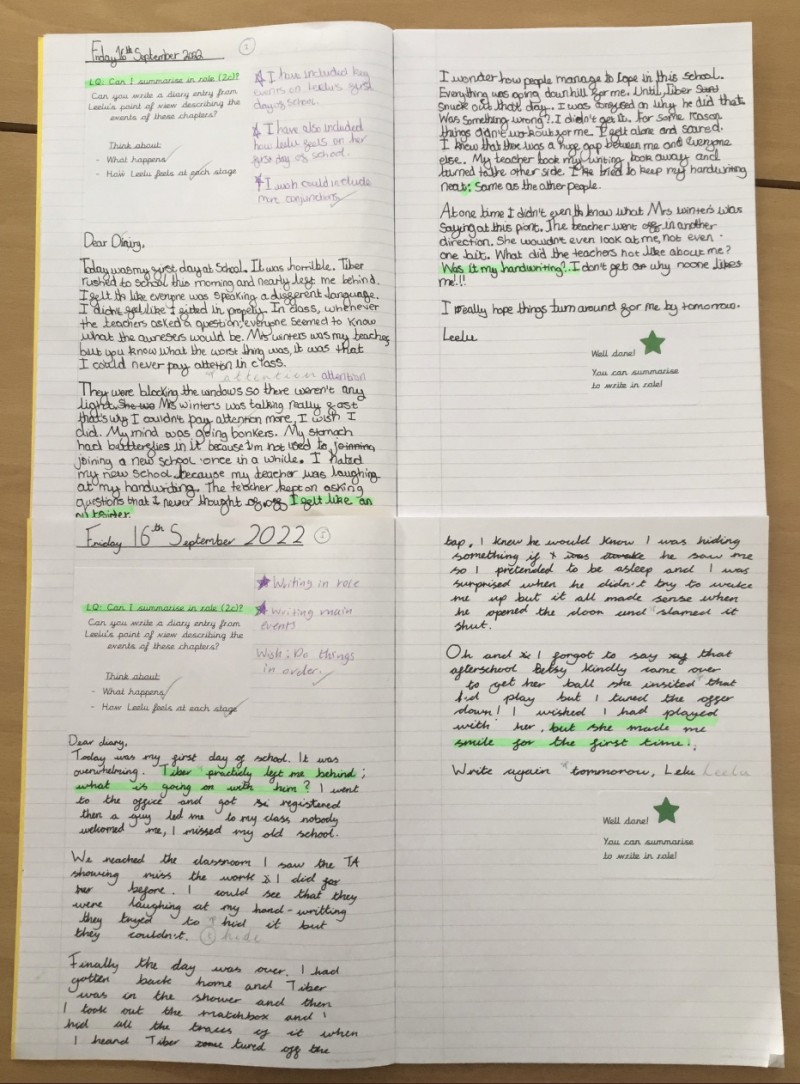 Friday 16th September 2022
1
LQ: Can I summarise in role (2c)?
Can you write a diary entry from
Leelu's point of view describing the
events of these chapters?
Think about:
- What happens
- How Leelu feels at each stage
I have included key
events on Leelu's first
day of school.
I have also included
how leelu feels on her
first day of school.
I wish could include
more conjunctions
Dear Dairy,
Today was my first day at School. It was horrible. Tiber
rushed to school this morning and nearly left me behind.
I felt like everyone was speaking a different language.
I didn't feel like I fitted in properly. In class, whenever
the teachers asked a question, everyone seemed to know
what the awnsers would be. Mrs winters was my teacher
but you know what the worst thing was, it was that
I could never pay attetion in class.
attention attention
They were blocking the windows so there weren't any
light. She was Mrs winters was talking really fast
that's why I couldn't pay attention more, I wish I
did. My mind was going bonkers. My stomach
had butterflies in it because I'm not used to joinning,
joining a new school once in a while. I hated
my new school because my teacher was laughing
at my handwriting. The teacher kept on asking
questions that I never thought of. I felt like an
outsider.
I wonder how people manage to cope in this school.
Everything was going down hill for me. Until, Tiber
snuck out that day. I was confused on why he did that.
Was something wrong?. I didn't get it. For some reason
things didn't workout for me. I felt alone and scared.
I knew that there was a huge gap between me and everyone
else. My teacher took my writing book away and
turned to the other side. I've tried to keep my handwriting
neat; Same as the other people.
At one time I didn't even know what Mrs winters was
saying at this piont. The teacher went off in another
direction. She wouldnt even look at me, not even
one bit. What did the teachers not like about me?
Was it my handwriting?. I don't get why noone likes
me!!!
I really hope things turn around for me by tomorrow.
Leelu
Well done!
You can summarise
to write in role!
Friday 16th September 2022
LQ: Can I summarise in role (2c)?
Can you write a diary entry from
Leelu's point of view describing the
events of these chapters?
Think about:
- What happens
- How Leelu feels at each stage
Writing in role
Writing main
events
Wish: Do things
in order.
Dear diary,
Today was my first day of school. It was
overwhelming. Tiber practicly left me behind;
what is going on with him? I went
to the office and got registered
then a guy led me to my class, nobody
welcomed me, I missed my old school.
We reached the classroom I saw the TA
showing miss the work I did for
her before. I could see that they
were laughing at my hand-writting
they tryed to hid it but
they couldn't. hide
Finally the day was over. I had
gotten back home and Tiber
was in the shower and then
I took out the matchbox and
hid all the traces of it when
I heard Tiber tured off the
tap. I knew he would know I was hiding
something if he saw me
so I pretended to be asleep and I was
surprised when he didn't try to wake
me up but it all made sense when
he opened the door and slamed it
shut.
Oh and I forgot to say that
afterschool Betsy kindly came over
to get her ball she insited that
I play but I tured the offer
down! I wished I had played
with her, but she made me
smile for the first time!.
Write again tommorow, Lelu Leelu
Well done!
You can summarise
to write in role!